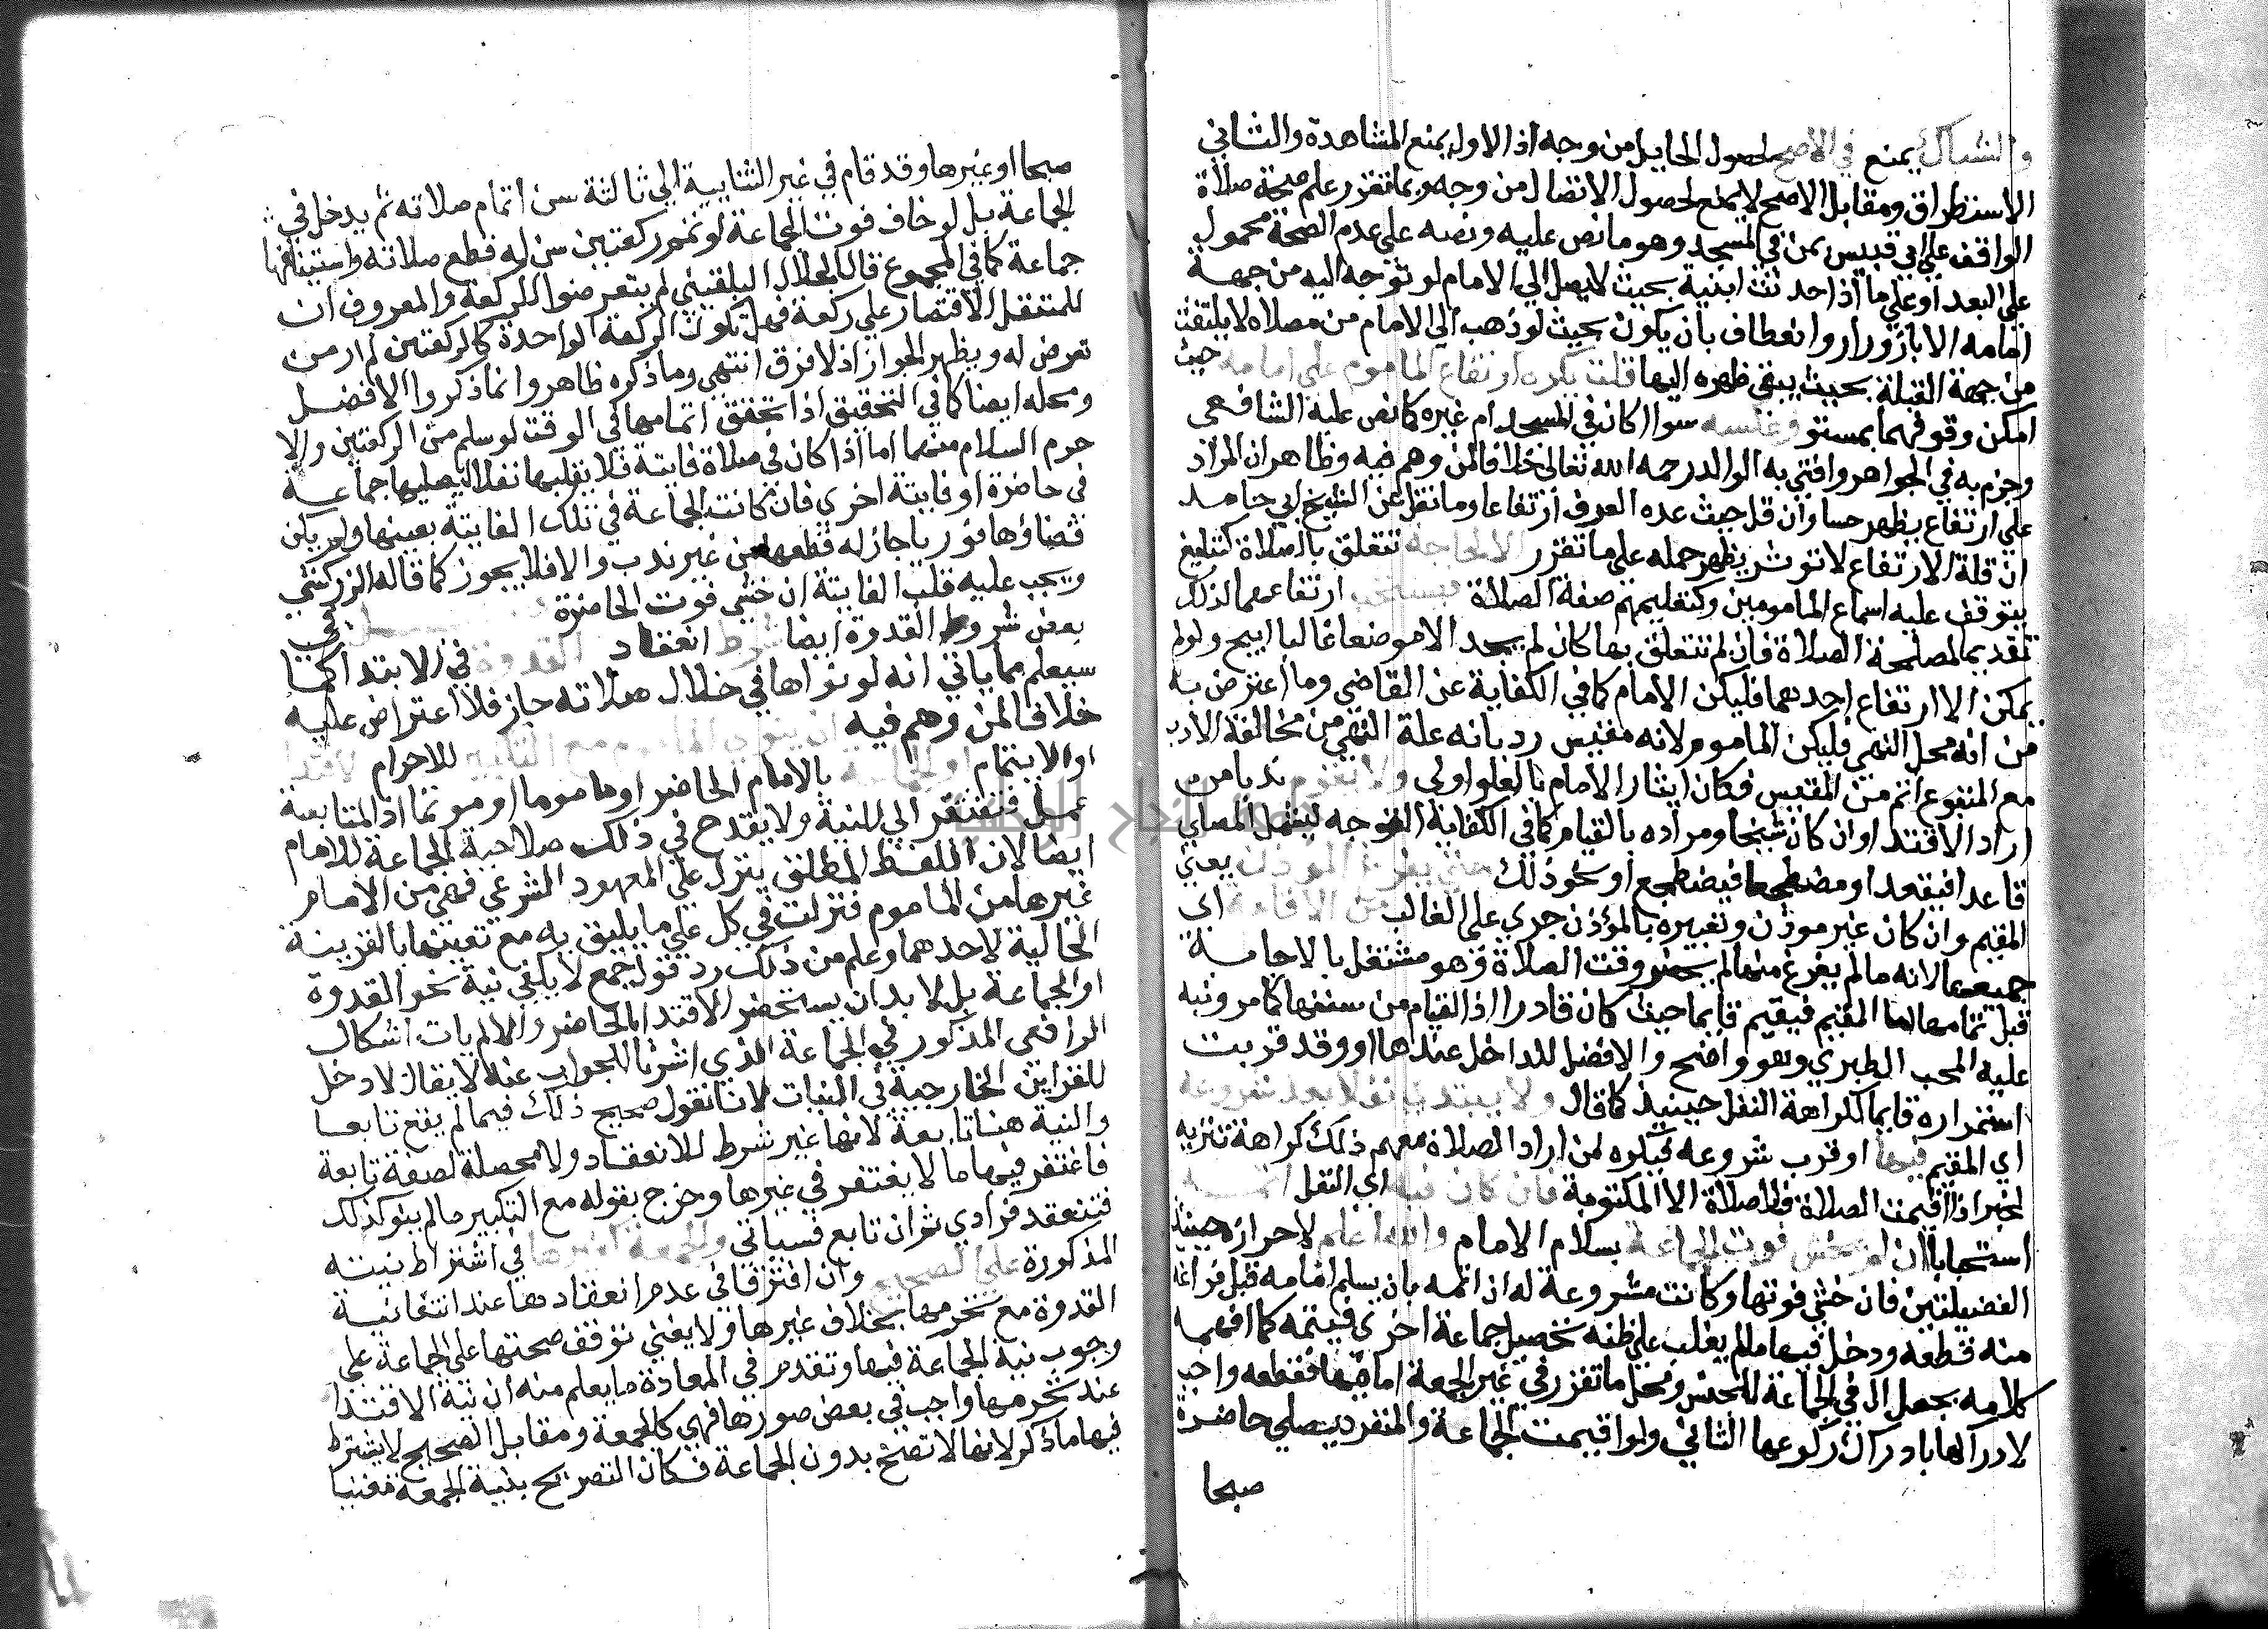 والشباك يمنع في الأصح لحصول الحايل من وجه اذ الاول يمنع المشاهدة والثاني
الاستطراق ومقابل الاصح لا يمنع لحصول الاتصال من وجه وبما تقرر علم صحة صلاة
الواقف علي ابي قبيس بمن في المسجد وهو ما نص عليه ونصه علي عدم الصحة محمول
علي البعد او علي ما اذا حدثت ابنية بحيث لا يصل الي الامام لو توجه اليه من جهة
امامه الا بازورار وانعطاف بان يكون بحيث لو ذهب الي الامام من مصلاه لا يلتفت
من جهة القبلة بحيث يبقي ظهره اليها قلت يكره ارتفاع الماموم علي امامه حيث
امكن وقوفهما بمستو وعكسه سوا اكان في المسجد ام غيره كما نص عليه الشافعي
وجزم به في الجواهر وافتي به الوالد رحمه الله تعالي خلافا لمن وهم فيه وظاهر ان المراد
علي ارتفاع يظهر حسا وان قل حيث عده العرف ارتفاعا وما نقل عن الشيخ ابي حامد
ان قلة الارتفاع لا توثر يظهر حمله علي ما تقرر الا لحاجة تتعلق بالصلاة كتبليغ
يتوقف عليه اسماع المامومين وكتعليمهم صفة الصلاة فيستحب ارتفاعهما لذلك
تقديما لمصلحة الصلاة فان لم تتعلق بها كان لم يجد الا موضعا غاليا ابيح ولو لم
يمكن الا ارتفاع احدهما فليكن الامام كما في الكفاية عن القاضي وما اعترض به
من انه محل النهي فليكن الماموم لانه مقيس رد بانه علة النهي من مخالفة الادب
مع المتبوع اتم من المقيس فكان ايثار الامام بالعلو اولي ولا يقوم ندبا من
اراد الاقتدا وان كان شيخا ومراده بالقيام كما في الكفاية التوجه ليشمل المصلي
قاعدا فيقعد او مضطجعا فيضطجع او نحو ذلك حتي يفرغ الموذن يعني
المقيم وان كان غير موذن وتعبيره بالمؤذن جري علي الغالب من الاقامة اي
جميعها لانه ما لم يفرغ منها لم يحضر وقت الصلاة وهو مشتغل بالاجابة
قبل تمامها اما المقيم فيقيم قايما حيث كان قادرا اذ القيام من سننها كما مر ونبه
عليه المحب الطبري وهو واضح والافضل للداخل عندها او وقد قربت
استمراره قايما لكراهة النفل حينيذ كما قال ولا يبتدي نفلا بعد شروعه
اي المقيم فيها او قرب شروعه فيكره لمن اراد الصلاة معهم ذلك كراهة تنزيه
لخبر اذا اقيمت الصلاة فلا صلاة الا المكتوبة فان كان فيه اي النفل اتمه
استحبابا ان لم يخش فوت الجماعة بسلام الامام والله اعلم لاحرازه حينيذ
الفضيلتين فان خشي فوتها وكانت مشروعة له ان اتمه بان يسلم امامه قبل فراغه
منه قطعه ودخل فيها ما لم يغلب علي ظنه تحصيل جماعة اخري فيتمه كما افهمه
كلامه بجعل ال في الجماعة للجنس ومحل ما تقرر في غير الجمعة اما فيها فقطعه واجب
لادراكها بادراك ركوعها الثاني ولو اقيمت الجماعة والمنفرد يصلي حاضرة
صبحا
صبحا او غيرها وقد قام في غير الثنايية الي ثالثة سن اتمام صلاته ثم يدخل في
الجماعة بل لو خاف فوت الجماعة لو تمم ركعتين سن له قطع صلاته واستينافها
جماعة كما في المجموع قال الجلال البلقيني لم يتعرضوا للركعة والمعروف ان
للمتنفل الاقتصار علي ركعة فهل تكون الركعة الواحدة كالركعتين لم ار من
تعرض له ويظهر الجواز اذ لا فرق انتهي وما ذكره ظاهر وانما ذكروا الافضل
ومحله ايضا كما في التحقيق اذا تحقق اتمامها في الوقت لو سلم من الركعتين والا
حرم السلام منهما اما اذا كان في صلاة فايتة فلا يقلبها نفلا ليصليها جماعة
في حاضرة او فايتة اخري فان كانت الجماعة في تلك الفايتة بعينها ولم يكن
قضاؤها فوريا جاز له قطعها من غير ندب والا فلا يجوز كما قاله الزركشي
ويجب عليه قلب الفايتة ان خشي فوت الحاضرة فصل في
بعض شروط القدوة ايضا شرط انعقاد القدوة في الابتدا كما
سيعلم مما ياتي انه لو نواها في خلال صلاته جاز فلا اعتراض عليه
خلافا لمن وهم فيه ان ينوي الماموم مع التكبير للاحرام الاقتدا
او الايتمام او الجماعة بالامام الحاضر او ماموما او موتما اذ المتابعة
عمل فتفتقر الي النية ولا يقدح في ذلك صلاحية الجماعة للامام
ايضا لان اللفظ المطلق ينزل علي المعهود الشرعي فهي من الامام
غيرها من الماموم فنزلت في كل علي ما يليق به مع تعينها بالقرينة
الحالية لاحدهما وعلم من ذلك رد قول جمع لا يكفي نية نحو القدوة
او الجماعة بل لا بد ان يستحضر الاقتدا بالحاضر والا لم يات اشكال
الرافعي المذكور في الجماعة الذي اشرنا للجواب عنه لا يقال لا دخل
للقراين الخارجية في النيات لانا نقول صحيح ذلك فيما لم يقع تابعا
والنية هنا تابعة لانها غير شرط للانعقاد ولا محصلة لصفة تابعة
فاغتفر فيها ما لا يغتفر في غيرها وخرج بقوله مع التكبير ما لم ينو كذلك
فتنعقد فرادي ثم ان تابع فسياتي والجمعة كغيرها في اشتراط نيته
المذكورة علي الصحيح وان افترقا في عدم انعقادها عند انتفا نية
القدوة مع تحرمها بخلاف غيرها ولا يغني توقف صحتها علي الجماعة علي
وجوب نية الجماعة فيها وتقدم في المعادة ما يعلم منه ان نية الاقتدا
عند تحرمها واجب في بعض صورها فهي كالجمعة ومقابل الصحيح لا يشترط
فيها ما ذكر لانها لا تصح بدون الجماعة فكان التصريح بنية الجمعة مغنيا